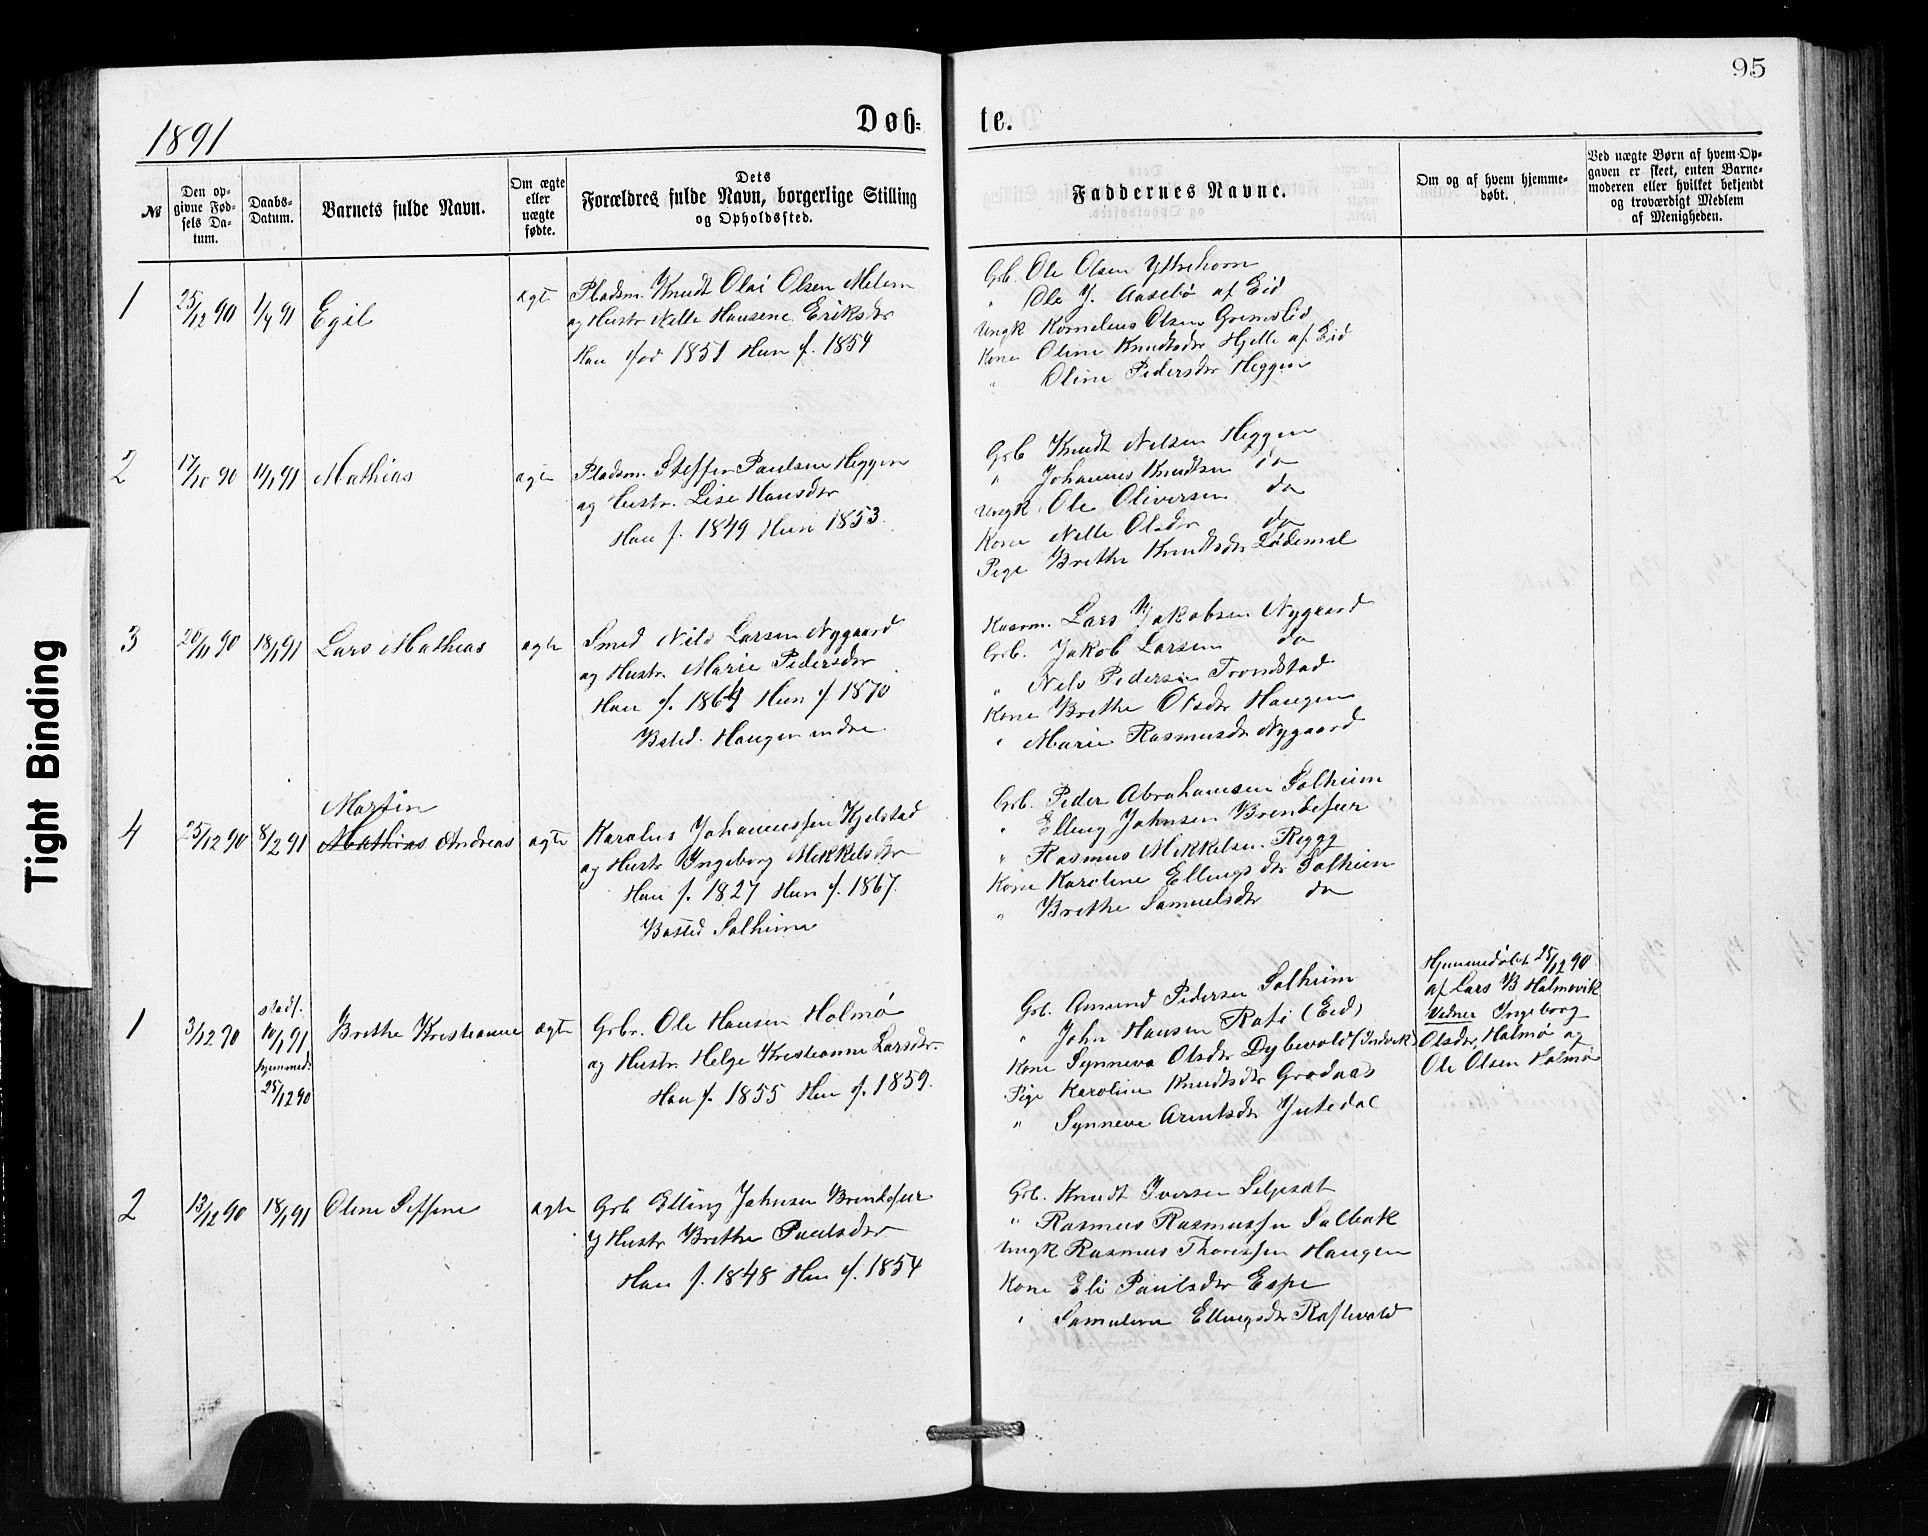 95
1891
Døb-
te.
№
Den op-
givne Fød-
sels Da-
tum.
Daabs-
Datum.
Barnets fulde Navn.
Om ægte
eller
uægte
fødte.
Dets
Forældres fulde Navn, borgerlige Stilling
og Opholdssted.
Faddernes Navne.
Om og af hvem hjemme-
døbt.
Ved uægte Børn af hvem Op-
gaven er skeet, enten Barne-
moderen eller hvilket bekjendt
og troværdigt Medlem
af Menigheden.
1
25/12 90
Egil
ægte
Pladsm. Knudt Olai Olsen Melem
og Hustr Nelle Hansene Eriksdr
Han fød 1851 Hun f. 1854
Grb. Ole Olsen Yttrehorn
" Ole J. Aaselø af Eid
Ungk Kornelius Olsen Gremslid
Kone Oline Knudtsdr Hjelle af Eid
" Oline Pedersdr Heggen
2
17/10 90
11/1 91
Mathias
ægte
Pladsm. Steffen Paulsen Heggen
og Hustr. Lise Hansdr
Han f. 1849 Hun 1853.
Grb Knudt Nilsen Heggen
" Johannes Knudtsen do
Ungk Ole Oliversen do
Kone Nille Olsdr do
Pige Brithe Knudtsdr Lødemel
3
20/11 90
18/1 91
Lars Mathias
ægte
Smed Nils Larsen Nygaard
og Hustr. Marie Pedersdr
Han f. 1864 Hun f. 1870
Bsted. Haugen indre
Kaarm. Lars Jakobsen Nygaard
Grb. Jakob Larsen do
" Nils Pedersen Tronstad
Kone Brithe Olsdr Haugen
" Marie Rasmusdr Nygaard
4
25/12 90
8/2 91
Martin
Mathias Andreas
ægte
Karolus Johannessen Kjelstad
og Hustr Ingeborg Mikkelsdr
Han f. 1827 Hun f. 1867.
Bosted Solheim
Grb. Peder Abrahamsen Solheim
" Elling Johnsen Brendefur
" Rasmus Mikkelsen Rygg
Kone Karoline Ellingsdr Solheim
" Brithe Samuelsdr do
1
3/12 90
stadf.
10/1 91
hjemmed.
25/12 90
Brithe Kristianne
ægte
Grbr. Ole Hansen Holmø
og Hustr. Helge Kristianne Larsdr.
Han f. 1855 Hun f. 1859.
Grb. Amund Pedersen Solheim
" John Hansen Rati (Eid)
Kone Synneva Olsdr Dybevold (Indvik)
Pige Karoline Knudtsdr Grodaas
" Synneve Arentsdr Jutedal
Hjemmedøbt 25/12 90
af Lars B Holmøvik
Vidner Ingeborg
Olsdr. Holmø og
Ole Olsen Holmø
2
13/12 90
18/1 91
Oline
ægte
Grb Elling Johnsen Brendefur
og Hustr Brithe Paulsdr
Han f. 1848 Hun f. 1854
Grb. Knudt Iversen Seljeset
" Rasmus Rasmussen Solbak
Ungk Rasmus Thoressen Haugen
Kone Eli Paulsdr Espe
" Samuline Ellingsdr Raftevold
Tight Binding